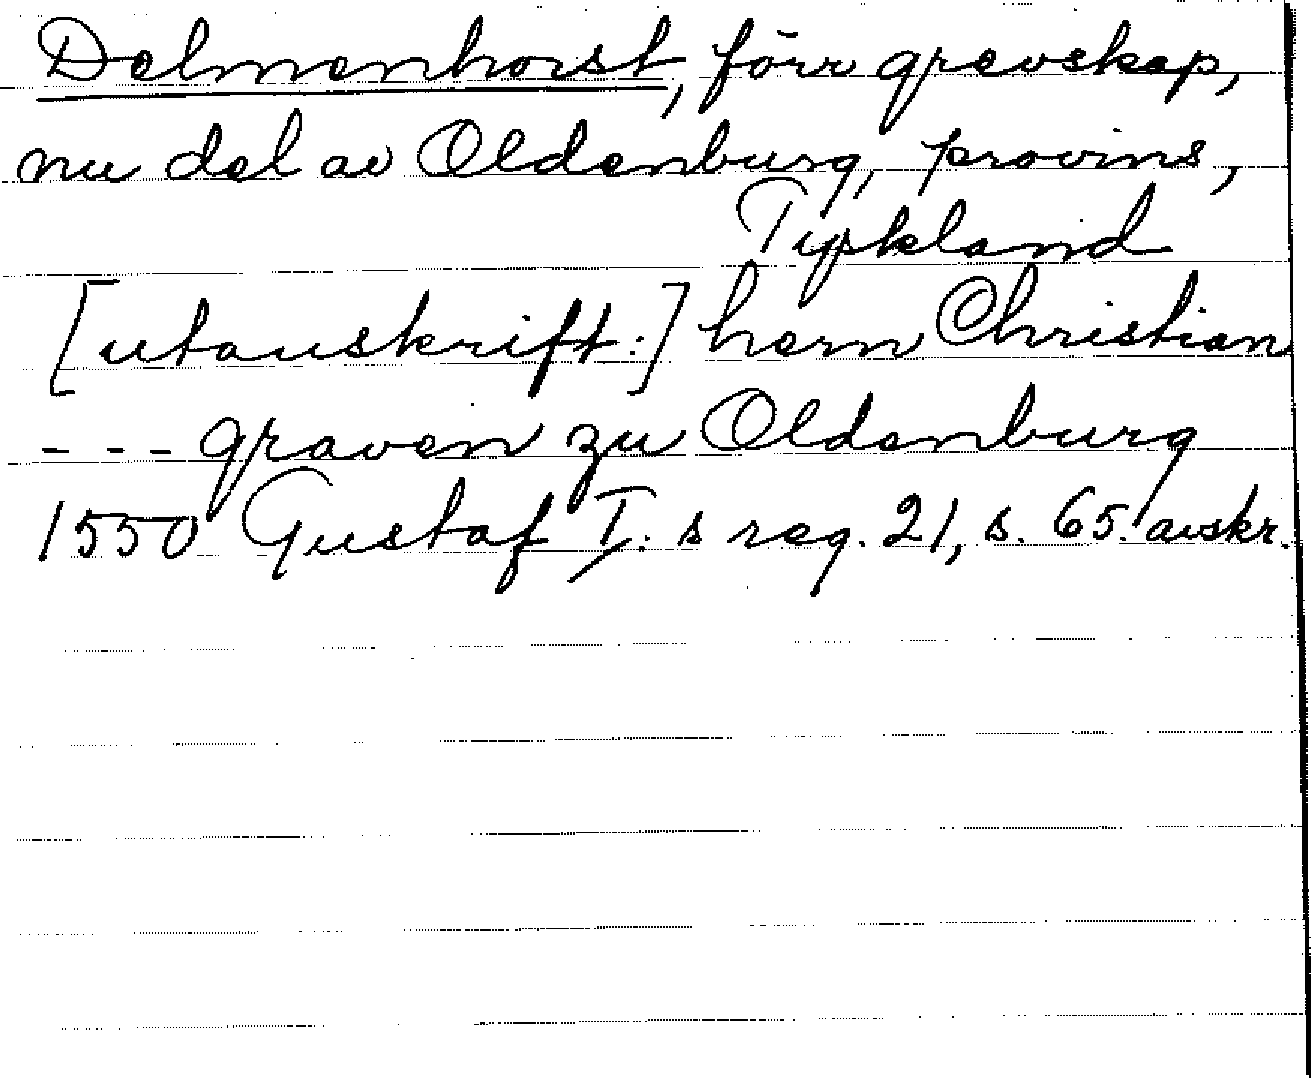 Delmenhorst, förr grevskap,
nu del av Oldenburg, provins,
Tyskland
[utanskrift:] hern Christian
- - - graven zu Oldenburg
1550 Gustaf I:s reg. 21, s. 65. avskr.